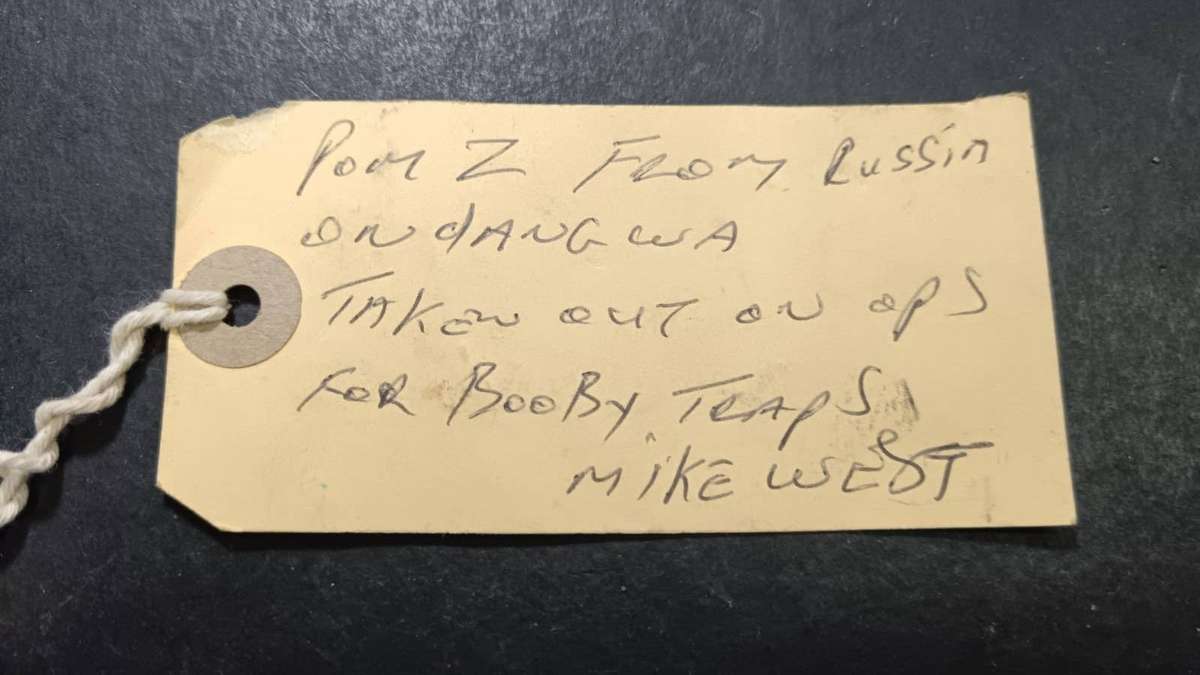 POM Z FROM RUSSIA
ONDANGWA
TAKEN OUT ON OPS
FOR BOOBY TRAPS
MIKE WEST